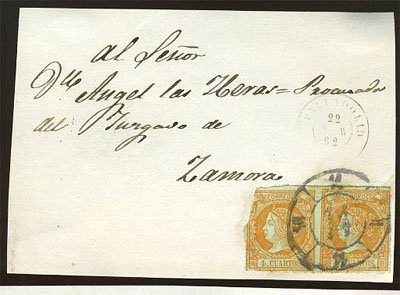 Al Señor
Dn Angel las Heras = Procurador
del Juzgado de
Zamora
VALLADOLID
22
62
4 CUARTOS